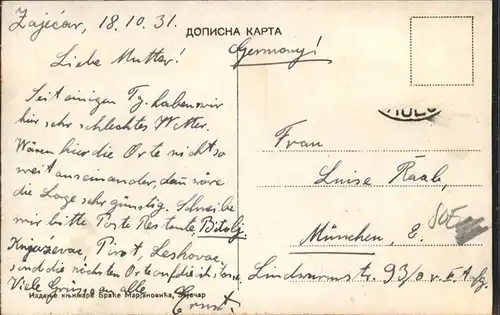 Zaječar, 18.10.31.
ДОПИСНА КАРТА
Liebe Mutter!
Germany!
Seit einigen Tg. haben wir
hier sehr schlechtes Wetter.
Wären hier die Orte nicht so
weit auseinander, dann wäre
die Lage sehr günstig. Schreibe
mir bitte Poste Restante, Bitolj
Knjazevac, Pirot, Leskovac,
sind die nächsten Orte auf die ich
Viele Grüsse an alle
Ernst.
Frau
Luise Raab,
München, 8.
Lindwurmstr. 93/0 r. II. Afg.
Издање књижаре Браће Марјановића, Зајечар